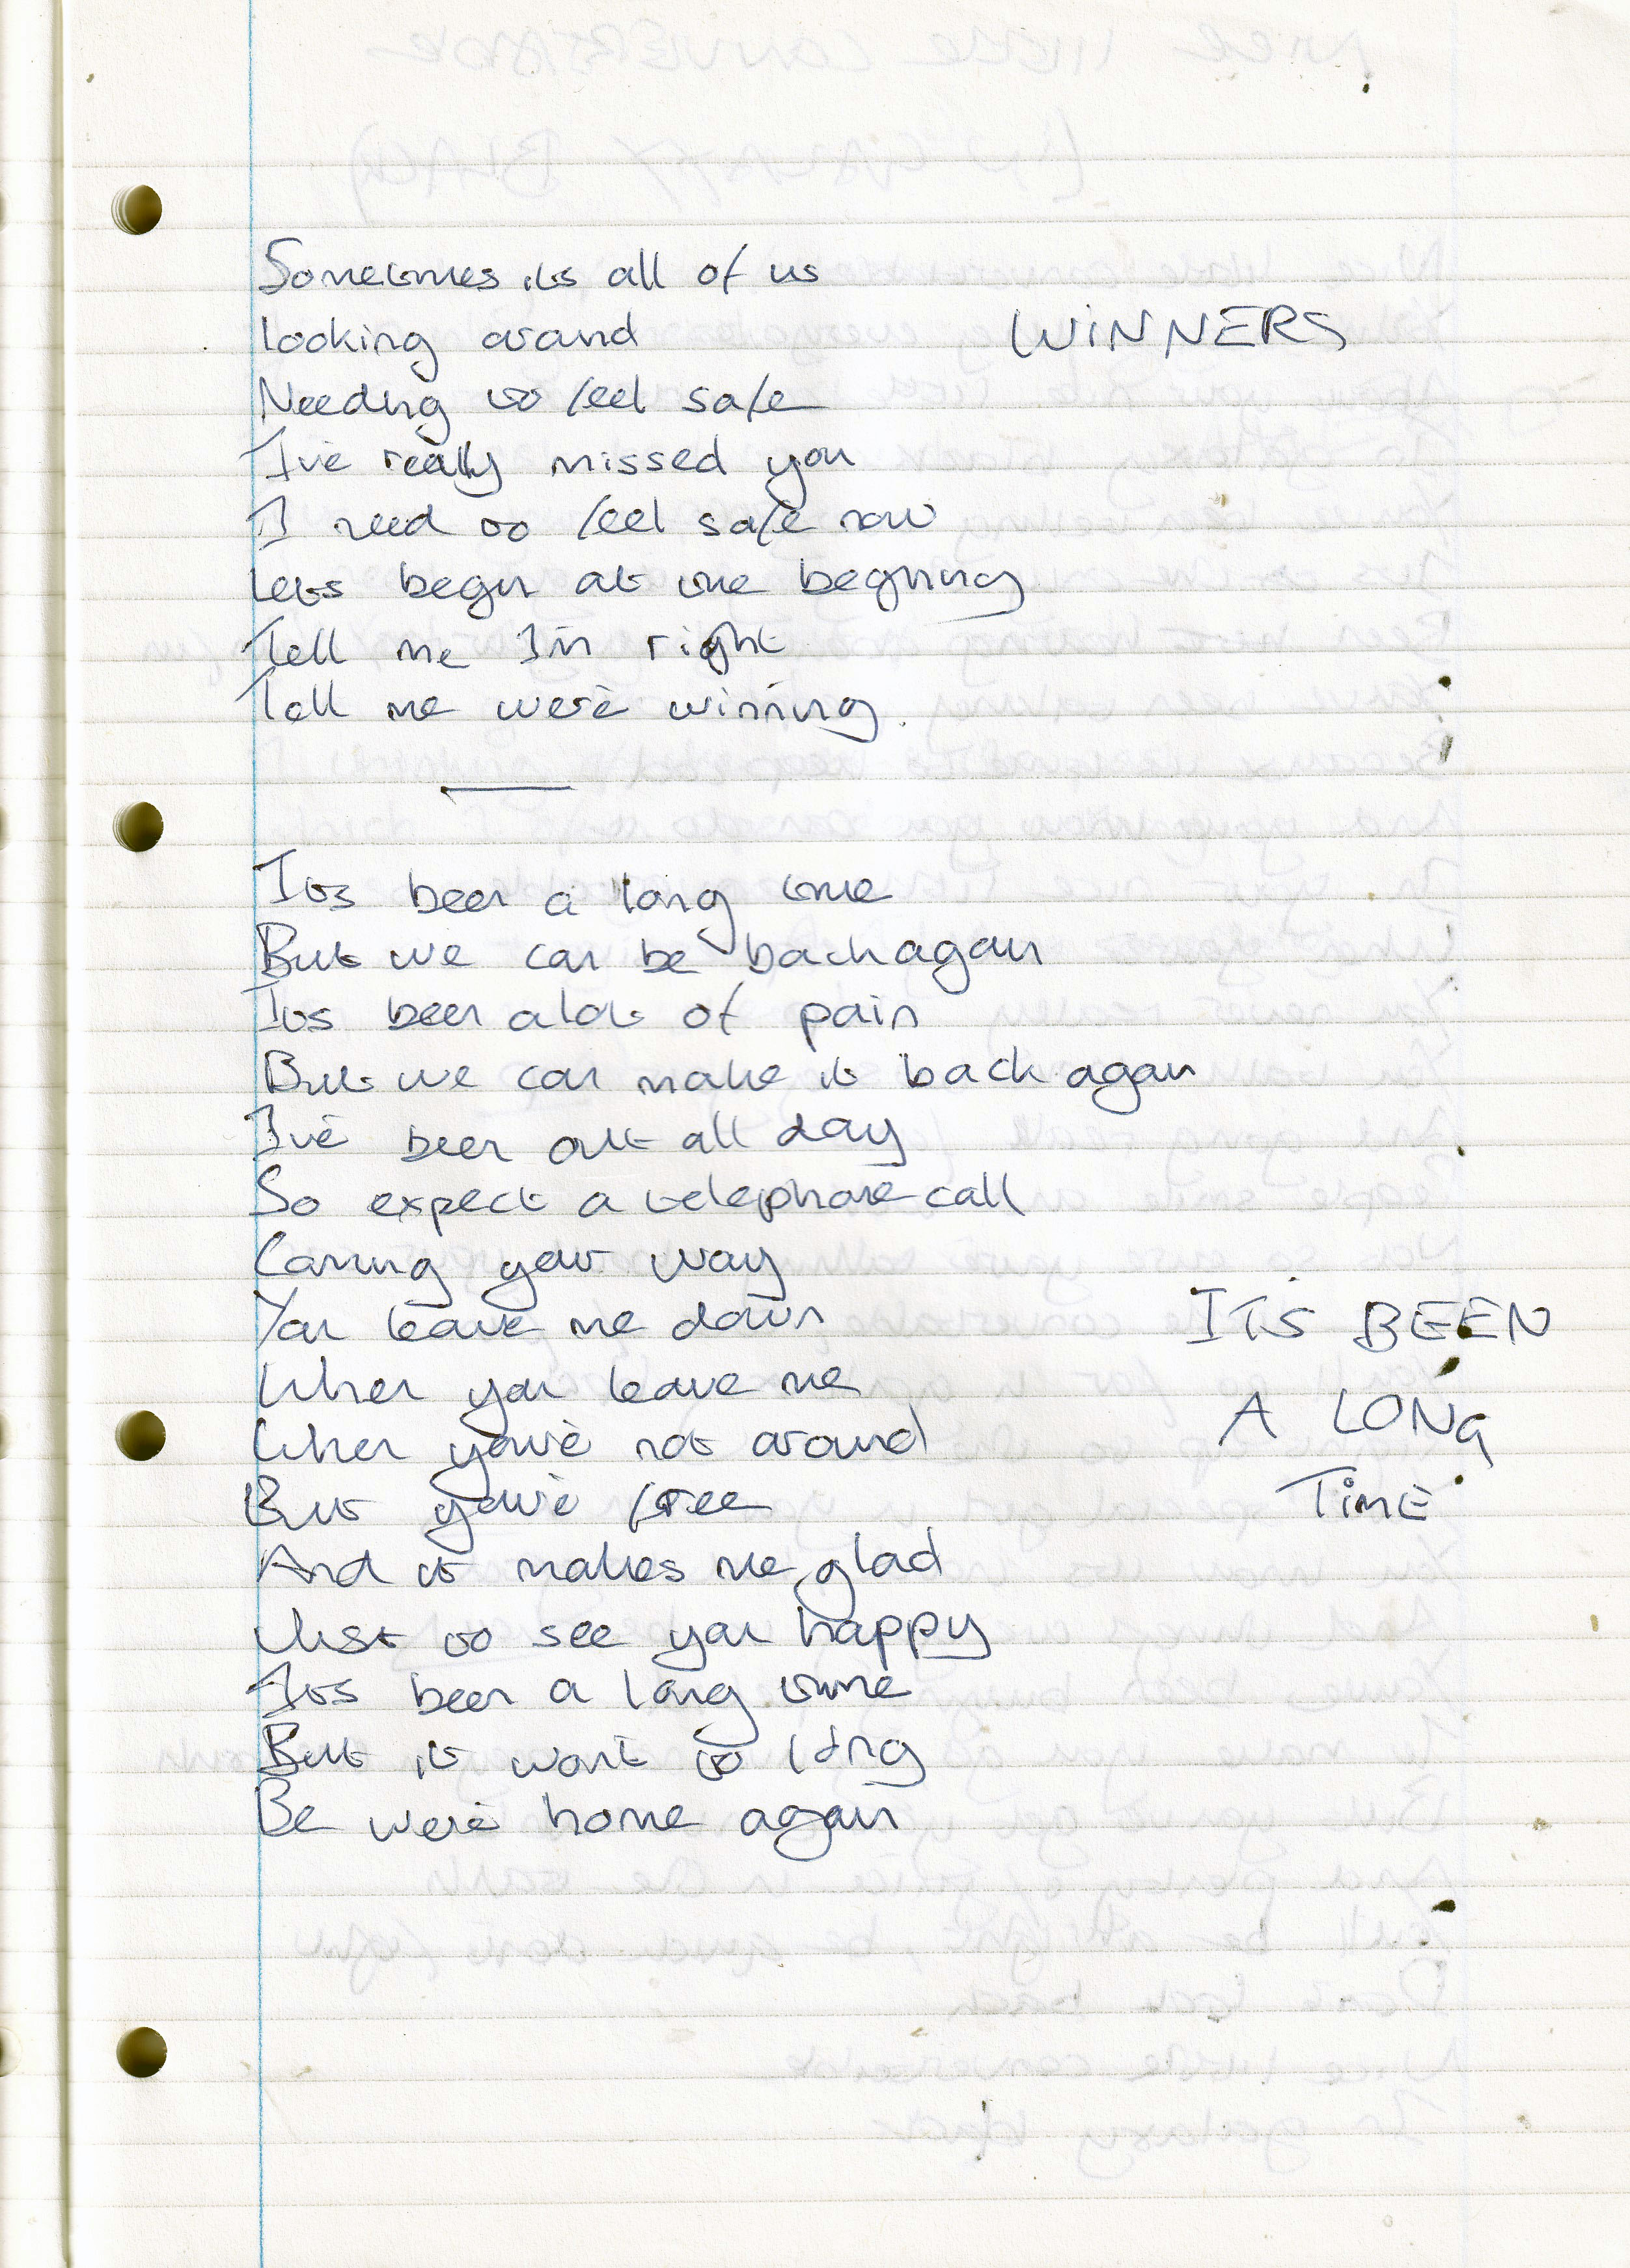 Sometimes its all of us
looking around
WINNERS
Needing to feel safe
I've really missed you
I need to feel safe now
Lets begin at the begining
Tell me Im right
Tell me we're winning.
Its been a long time
But we can be back again
Its been alot of pain
But we can make it back again
I've been out all day
So expect a telephone call
Coming your way
You leave me down
ITS BEEN
When you leave me
A LONG
When you're not around
TIME
But you're free
And it makes me glad
Just to see you happy
Its been a long time
But it wont to long
Be we're home again